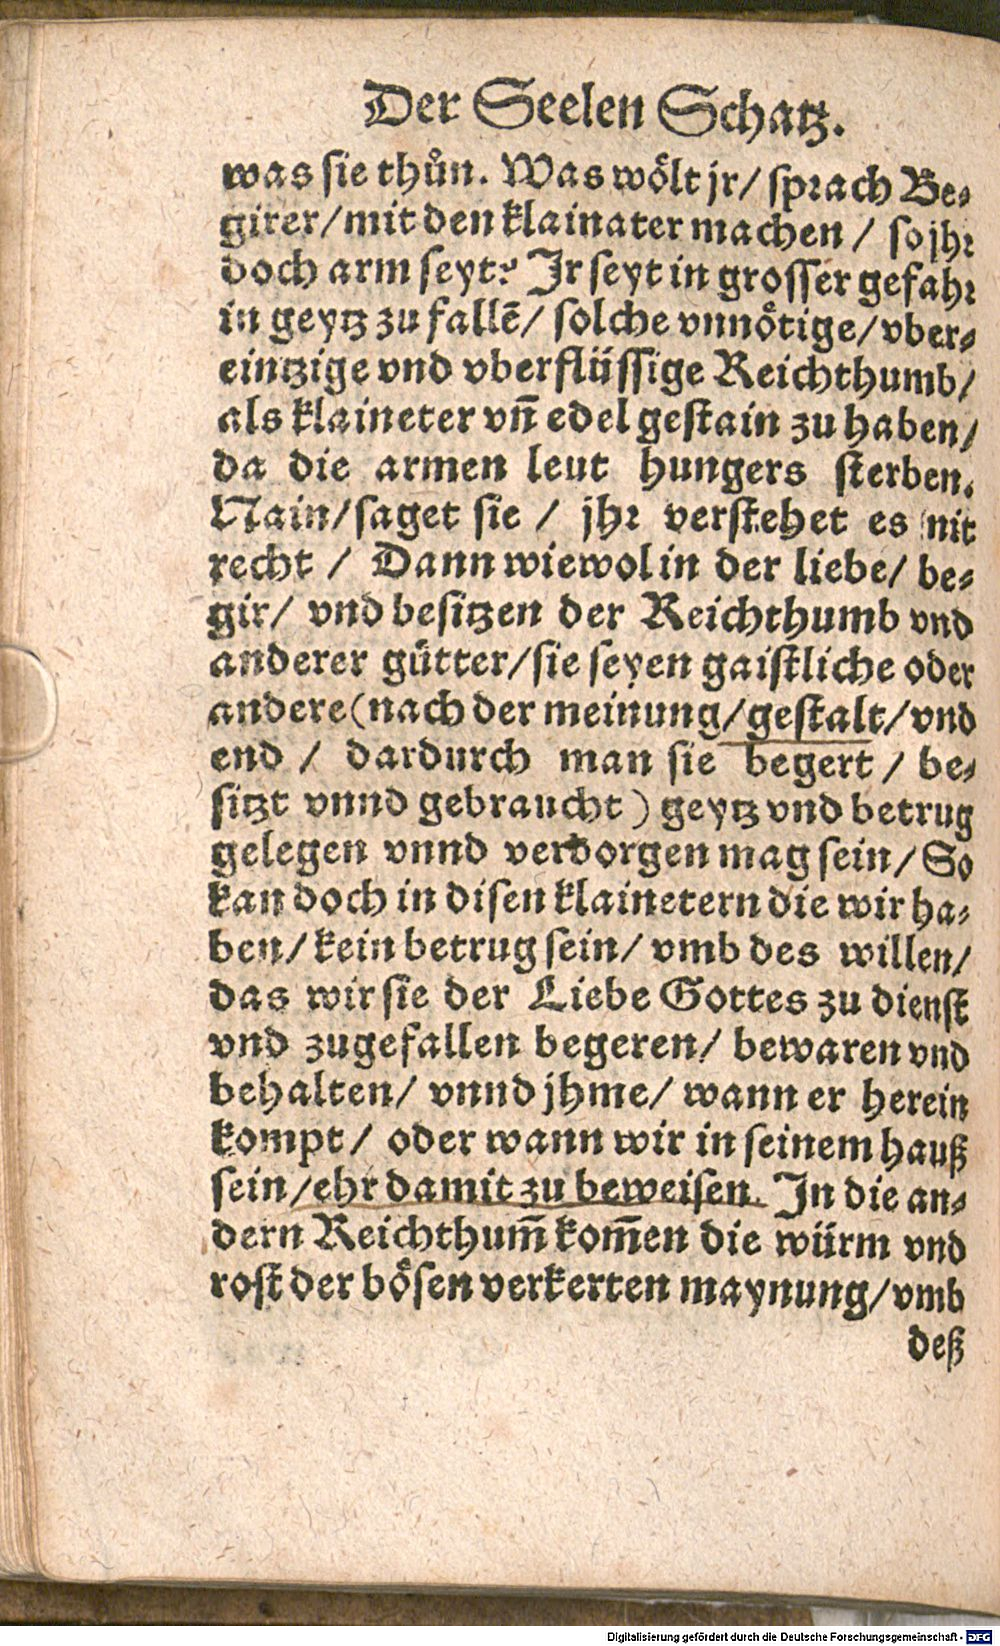 Der Seelen Schatz.
was sie thůn. Was woͤlt jr/ sprach Be-
girer/mit den klainater machen / so jhr
doch arm seyt? Jr seyt in grosser gefahr
in geytz zu fallē/ solche vnnoͤtige/vber-
eintzige vnd vberflüssige Reichthumb/
als klaineter vn̄ edel gestain zu haben/
da die armen leut hungers sterben.
Nain/saget sie / jhr verstehet es nit
recht / Dann wiewol in der liebe/ be-
gir/ vnd besitzen der Reichthumb vnd
anderer guͤtter/sie seyen gaistliche oder
andere(nach der meinung/gestalt/vnd
end / dardurch man sie begert / be-
sitzt vnnd gebraucht ) geytz vnd betrug
gelegen vnnd verborgen mag sein/ So
kan doch in disen klainetern die wir ha-
ben/ kein betrug sein/ vmb des willen/
das wir sie der Liebe Gottes zu dienst
vnd zugefallen begeren/ bewaren vnd
behalten/ vnnd jhme/ wann er herein
kompt/ oder wann wir in seinem hauß
sein/ehr damit zu beweisen. In die an-
dern Reichthum̄ kom̄en die würm vnd
rost der boͤsen verkerten maynung/vmb
deß
Digitalisierung gefördert durch die Deutsche Forschungsgemeinschaft - DFG